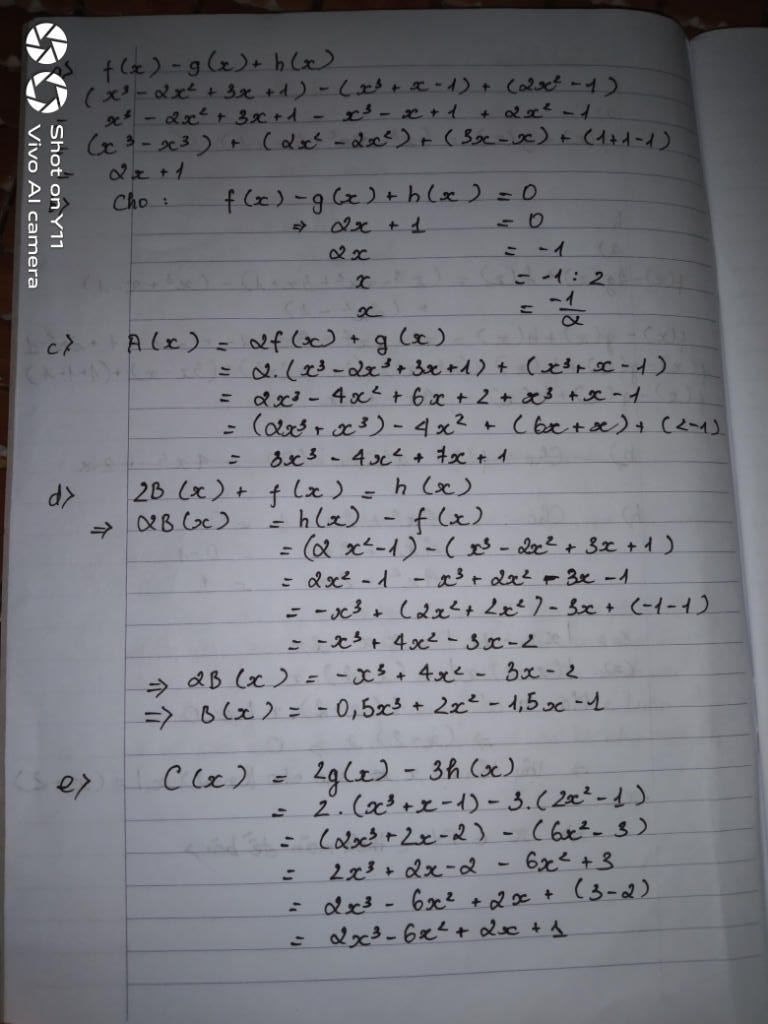 f(x) - g(x) + h(x)
(x³ - 2x² + 3x + 1) - (x³ + x - 1) + (2x² - 1)
x³ - 2x² + 3x + 1 - x³ - x + 1 + 2x² - 1
(x³ - x³) + (2x² - 2x²) + (3x - x) + (1+1-1)
= 2x + 1
Cho : f(x) - g(x) + h(x) = 0
⇒ 2x + 1 = 0
2x = -1
x = -1 : 2
x = -1/2
c> A(x) = 2f(x) + g(x)
= 2.(x³ - 2x³ + 3x + 1) + (x³ + x - 1)
= 2x³ - 4x² + 6x + 2 + x³ + x - 1
= (2x³ + x³) - 4x² + (6x + x) + (2-1)
= 3x³ - 4x² + 7x + 1
d> 2B(x) + f(x) = h(x)
⇒ 2B(x) = h(x) - f(x)
= (2x² - 1) - (x³ - 2x² + 3x + 1)
= 2x² - 1 - x³ + 2x² - 3x - 1
= -x³ + (2x² + 2x²) - 3x + (-1-1)
= -x³ + 4x² - 3x - 2
⇒ 2B(x) = -x³ + 4x² - 3x - 2
=> B(x) = -0,5x³ + 2x² - 1,5x - 1
e> C(x) = 2g(x) - 3h(x)
= 2.(x³ + x - 1) - 3.(2x² - 1)
= (2x³ + 2x - 2) - (6x² - 3)
= 2x³ + 2x - 2 - 6x² + 3
= 2x³ - 6x² + 2x + (3-2)
= 2x³ - 6x² + 2x + 1
Shot on Y11
Vivo AI camera